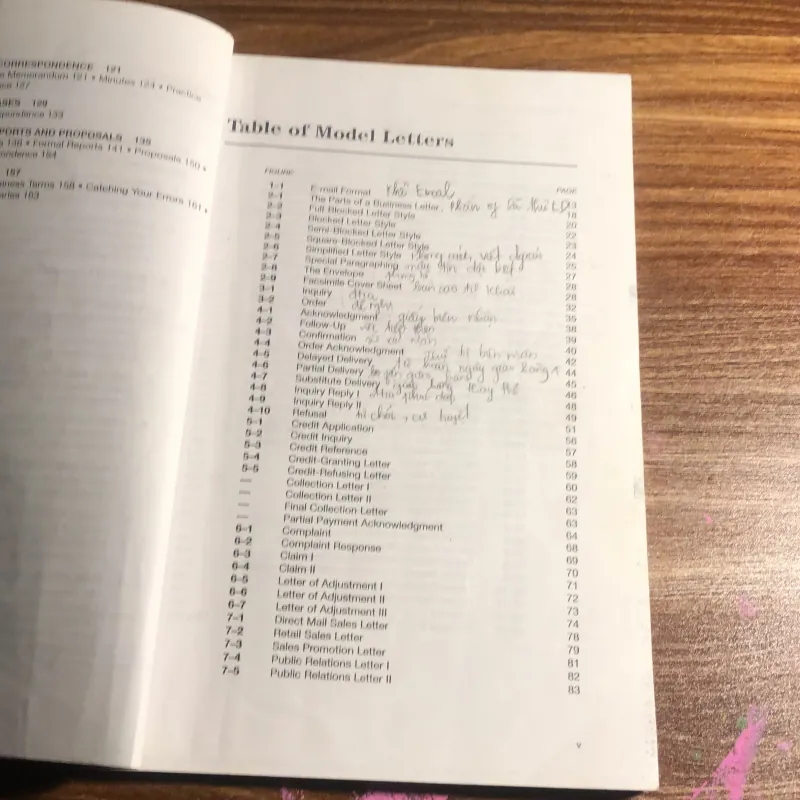 CORRESPONDENCE 121
Memorandum 121 • Minutes 124 • Practice
127
129
133
PORTS AND PROPOSALS 135
138 • Formal Reports 141 • Proposals 150 •
154
157
terms 158 • Catching Your Errors 161 •
163
Table of Model Letters
FIGURE PAGE
1–1 E-mail Format 13
2–1 The Parts of a Business Letter 18
2–2 Full-Blocked Letter Style 20
2–3 Blocked Letter Style 22
2–4 Semi-Blocked Letter Style 23
2–5 Square-Blocked Letter Style 24
2–6 Simplified Letter Style 25
2–7 Special Paragraphing 27
2–8 The Envelope 28
2–9 Facsimile Cover Sheet 28
3–1 Inquiry 32
3–2 Order 35
4–1 Acknowledgment giấy biên nhận 38
4–2 Follow-Up 39
4–3 Confirmation 40
4–4 Order Acknowledgment 42
4–5 Delayed Delivery 44
4–6 Partial Delivery 45
4–7 Substitute Delivery 46
4–8 Inquiry Reply I 48
4–9 Inquiry Reply II 49
4–10 Refusal từ chối, cự tuyệt 51
5–1 Credit Application 56
5–2 Credit Inquiry 57
5–3 Credit Reference 58
5–4 Credit-Granting Letter 59
5–5 Credit-Refusing Letter 60
— Collection Letter I 62
— Collection Letter II 63
— Final Collection Letter 63
— Partial Payment Acknowledgment 64
6–1 Complaint 68
6–2 Complaint Response 69
6–3 Claim I 70
6–4 Claim II 71
6–5 Letter of Adjustment I 72
6–6 Letter of Adjustment II 73
6–7 Letter of Adjustment III 74
7–1 Direct Mail Sales Letter 78
7–2 Retail Sales Letter 79
7–3 Sales Promotion Letter 81
7–4 Public Relations Letter I 82
7–5 Public Relations Letter II 83
v